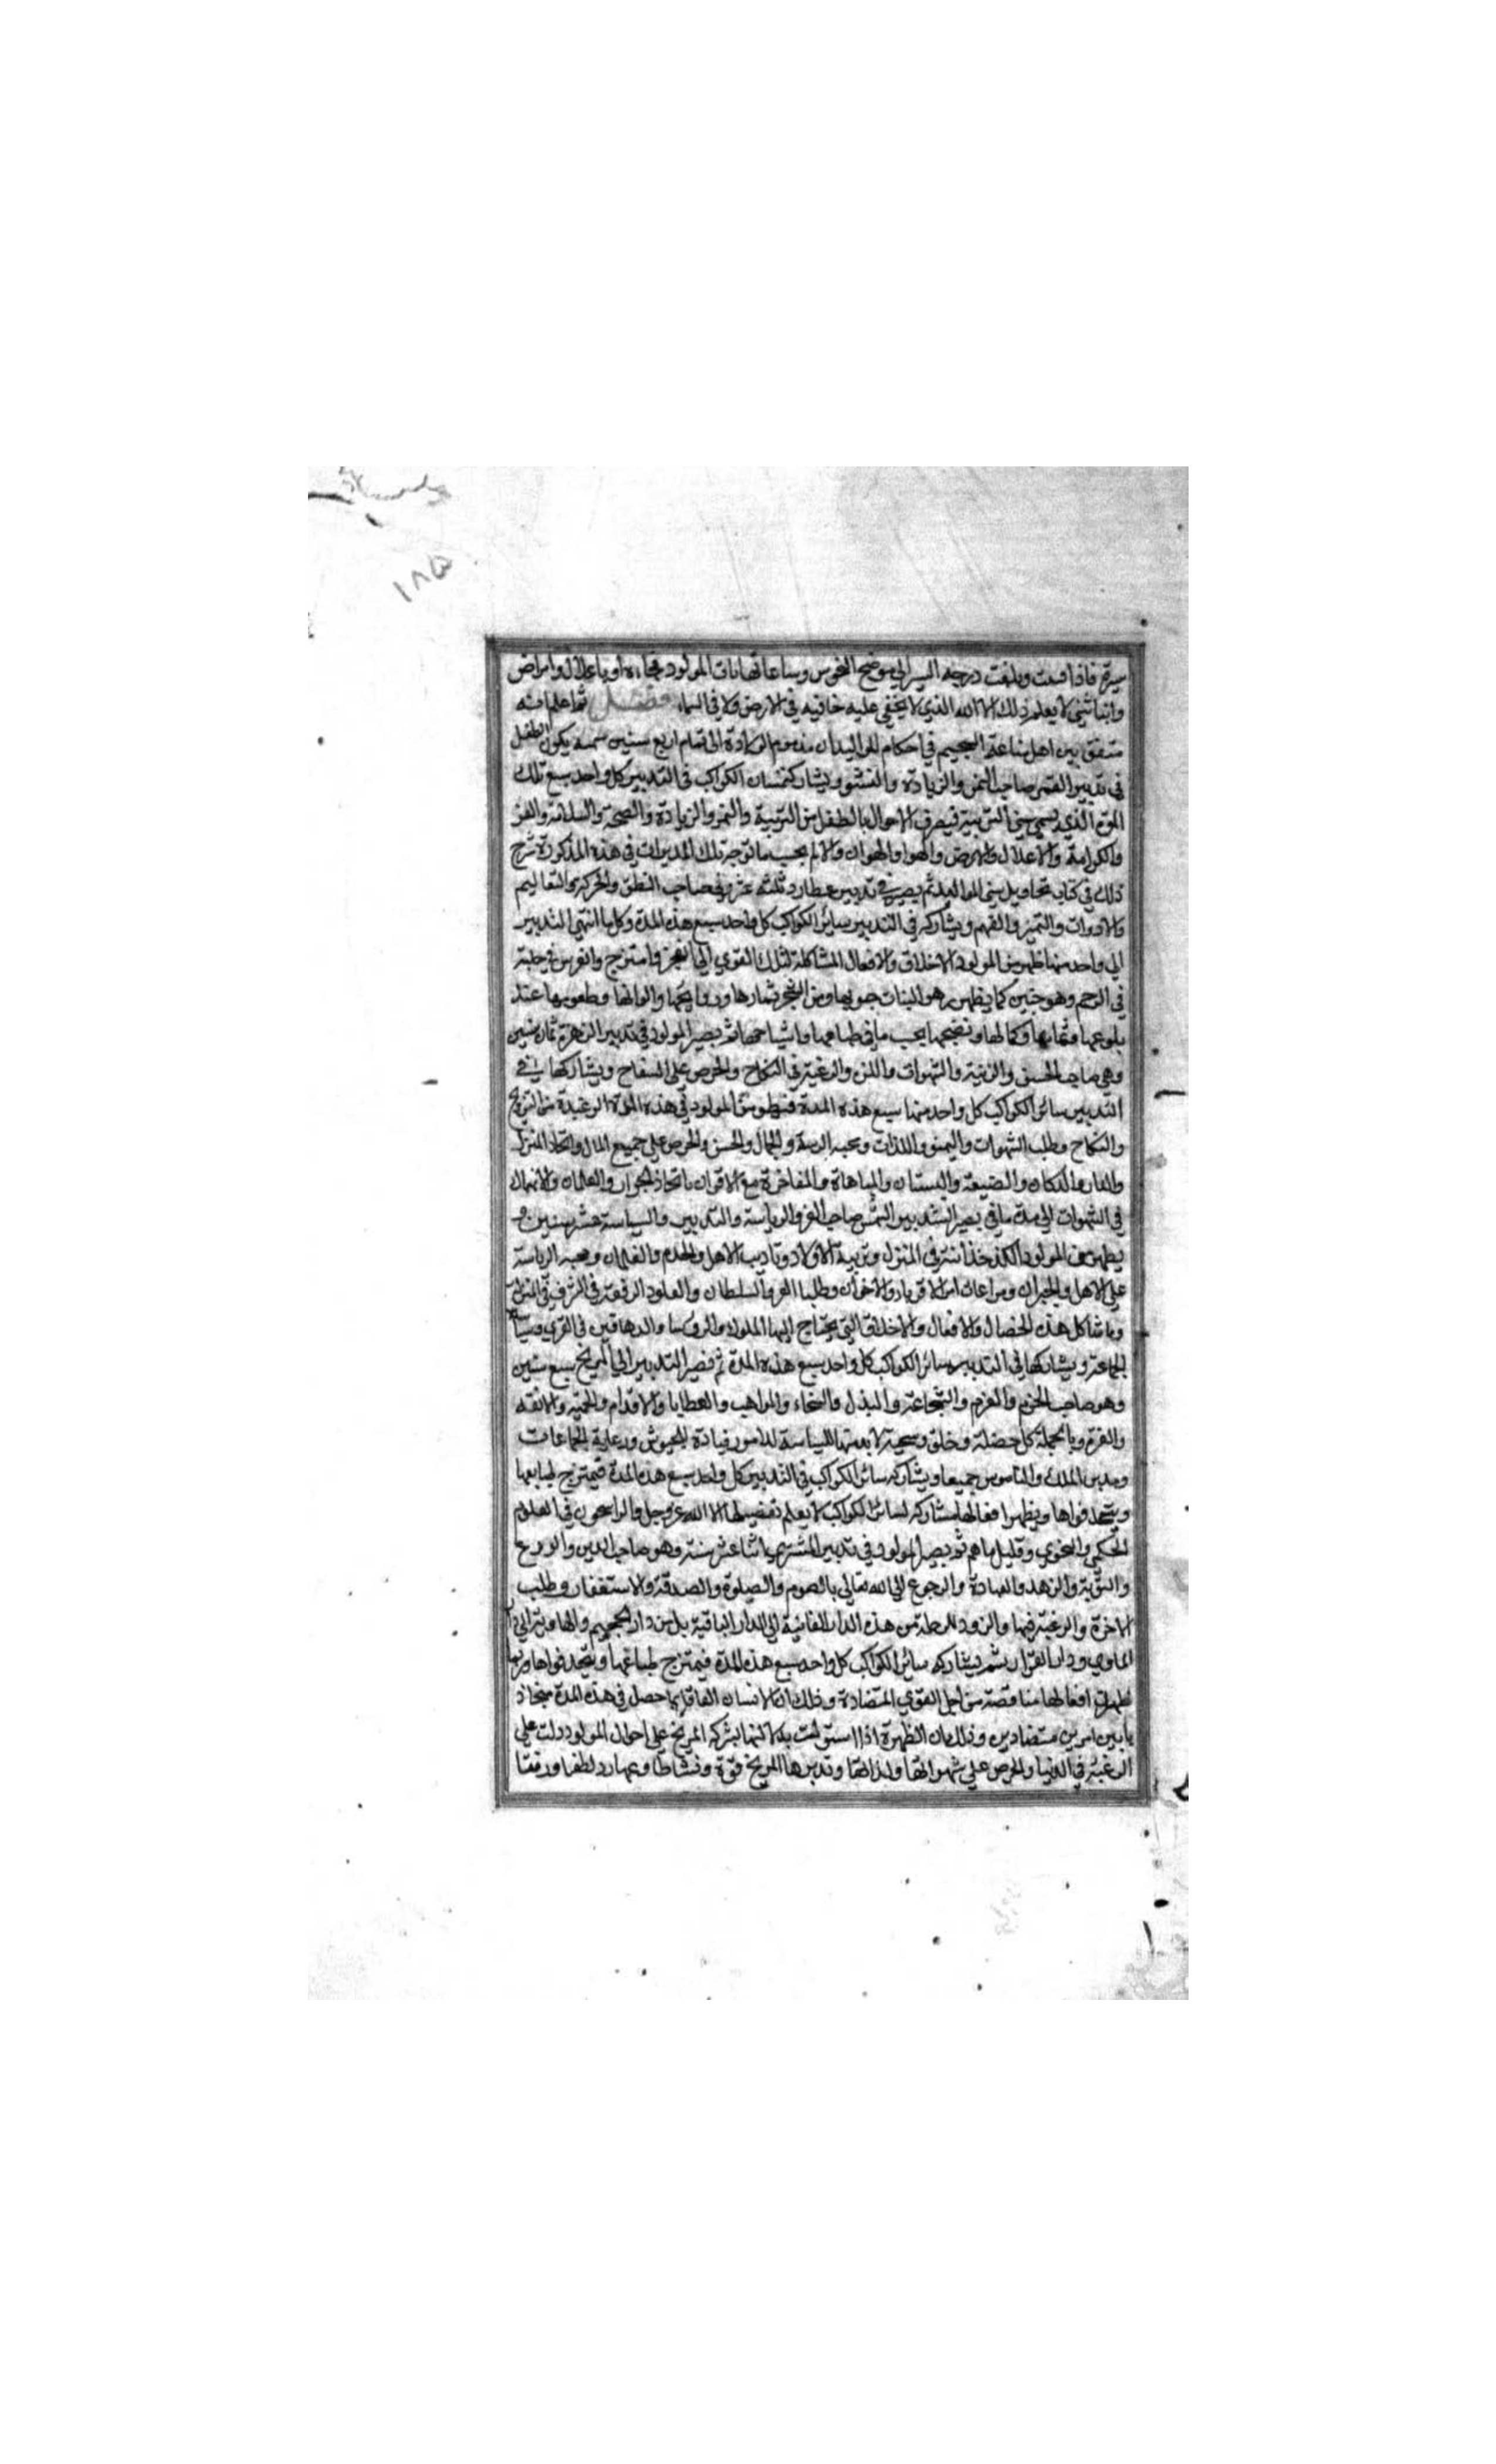 ١٨٥
سيرة فاذا قسمت وبلغت درجة السير الى موضع النحوس وساعاتها مات المولود فجاءة او باعلال وامراض
واتباشئ لا يعلم ذلك الا الله الذي لا يخفى عليه خافيه في الارض ولا في السماء فصل ثم اعلم انه
متفق بين اهل صناعة التنجيم في احكام المواليد ان منذ يوم الولادة الى تمام اربع سنين شمسية يكون الطفل
في تدبير القمر صاحب النمو والزيادة والنشوو ويشاركه سائر الكواكب في التدبير كل واحد سبع تلك
المدة الذي يسمى سني التربية فيصرف الاحوال بالطفل من التربية والنمو والزيادة والصحة والسلامة والعز
والكرامة والاعلال والامراض والهوا والهوان والالم بحسب ما توجبه تلك المدبرات في هذه المذكورة شرح
ذلك في كتاب تحاويل سني المواليد ثم يصير في تدبير عطارد ثلثة عشر وهو صاحب النطق والحركة والتعاليم
والادوات والتميز والفهم ويشاركه في التدبير سائر الكواكب كل واحد سبع هذه المدة وكل ما انتهى التدبير
الى واحد منها ظهر من المولود الاخلاق والافعال المشاكلة لتلك القوي التي انعجز وامتزج وانغرس في جبلته
في الرحم وهو جنين كما يظهر من زهو النبات حبوبها ومن الشجر ثمارها وروايحها والوانها وطعومها عند
بلوغها وتمامها وكمالها ونضجها بحسب ما في طباعها واشباحها ثم يصير المولود في تدبير الزهرة ثمان سنين
وهي صاحب الحسن والزينة والشهوات واللذة والرغبة في النكاح والحرص على السفاح ويشاركها في
التدبير سائر الكواكب كل واحد منها سبع هذه المدة فيظهر من المولود في هذه المدة الرغبة من التزويج
والنكاح وطلب الشهوات والتمنو واللذات ومحبة الزينة والجمال والحسن والحرص على جميع المال واتخاذ المنزل
والدار والدكان والضيعة والبستان والمباهاة والمفاخرة مع الاقران باتخاذ الجوار والغلمان والانهمال
في الشهوات الى مدة ما في يصير التدبير الشمس صاحب العز والرياسة والتدبير والسياسة عشر سنين و
يظهر من المولود الكدخذائية في المنزل وتربية الاولاد وتاديب الاهل والخدم والغلمان ومحبة الرياسة
على الاهل والجيران ومراعات امر الاقرباء والاخوان وطلب العز والسلطان والعلو والرفعة والشرف في المنزل
وما شاكل هذه الخصال والافعال والاخلاق التي يحتاج اليها الملوك والروسا والدهاقين في القرى وسياسة
الجماعة ويشاركها في التدبير سائر الكواكب كل واحد سبع هذه المدة ثم يصير التدبير الى المريخ سبع سنين
وهو صاحب الحزم والعزم والشجاعة والبذل والسخاء والمواهب والعطايا والاقدام والحمية والانفة
والعزة وبالجملة كل خصلة وخلق وسجية لا بد منها لسياسة الامور قيادة الجيوش ورعاية الجماعات
وتدبير الملك والناموس جميعا ويشاركه سائر الكواكب في التدبير كل واحد سبع هذه المدة فيمتزج طبايعها
ويتحد قواها ويظهر افعالها مشاركه لسائر الكواكب لا يعلم تفصيلها الا الله عز وجل والراسخون في العلوم
الحكمي والنجوي وقليل ما هم ثم يصير المولود في تدبير المشتري اثنا عشر سنة وهو صاحب الدين والورع
والتوبة والزهد والعبادة والرجوع الى الله تعالى بالصوم والصلوة والصدقة والاستغفار وطلب
الاخرة والرغبة فيها والزود للرحلة من هذه الدار الفانية الى الدار الباقية بل من دار الجحيم والهاوية الى دار
الماوى ودار القرار ثم يشاركه سائر الكواكب كل واحد سبع هذه المدة فيمتزج طباعها ويتحد قواها وربما
ظهرت افعالها مناقصة من اجل القوي المتضادة وذلك ان الانسان العاقل ربما حصل في هذه المدة متجاذ
با بين امرين متضادين وذلك ان الظهرة اذا استولت بدلائلها بشركة المريخ على احوال المولود دلت على
الرغبة في الدنيا والحرص على شهواتها ولذاتها وتدبرها المريخ قوة ونشاطا وعطارد لطفا ورفقا